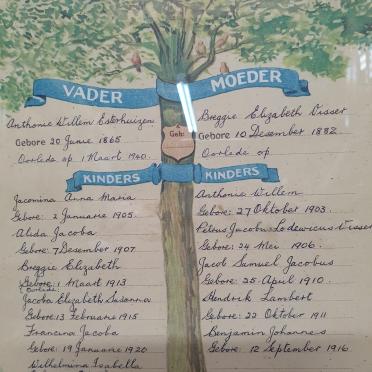 VADER
MOEDER
Anthonie Willem Esterhuizen
Gebore 20 Junie 1865
Oorlede op 1 Maart 1940.
Geb:
Breggie Elizabeth Visser
Gebore 10 Desember 1882
Oorlede op
KINDERS
KINDERS
Jacomina Anna Maria
Gebore: 2 Januarie 1905.
Alida Jacoba
Gebore: 7 Desember 1907
Breggie Elizabeth
Gebore: 1 Maart 1913
Oorlede:
Jacoba Elizabeth Susanna
Gebore: 13 Februarie 1915
Francina Jacoba
Gebore: 19 Januarie 1920
Wilhelmina Isabella
Anthonie Willem
Gebore: 27 Oktober 1903.
Petrus Jacobus Lodewicus Visser
Gebore: 24 Mei 1906.
Jacob Samuel Jacobus
Gebore: 25 April 1910.
Hendrik Lambert
Gebore: 22 Oktober 1911
Benjamin Johannes
Gebore: 12 September 1916